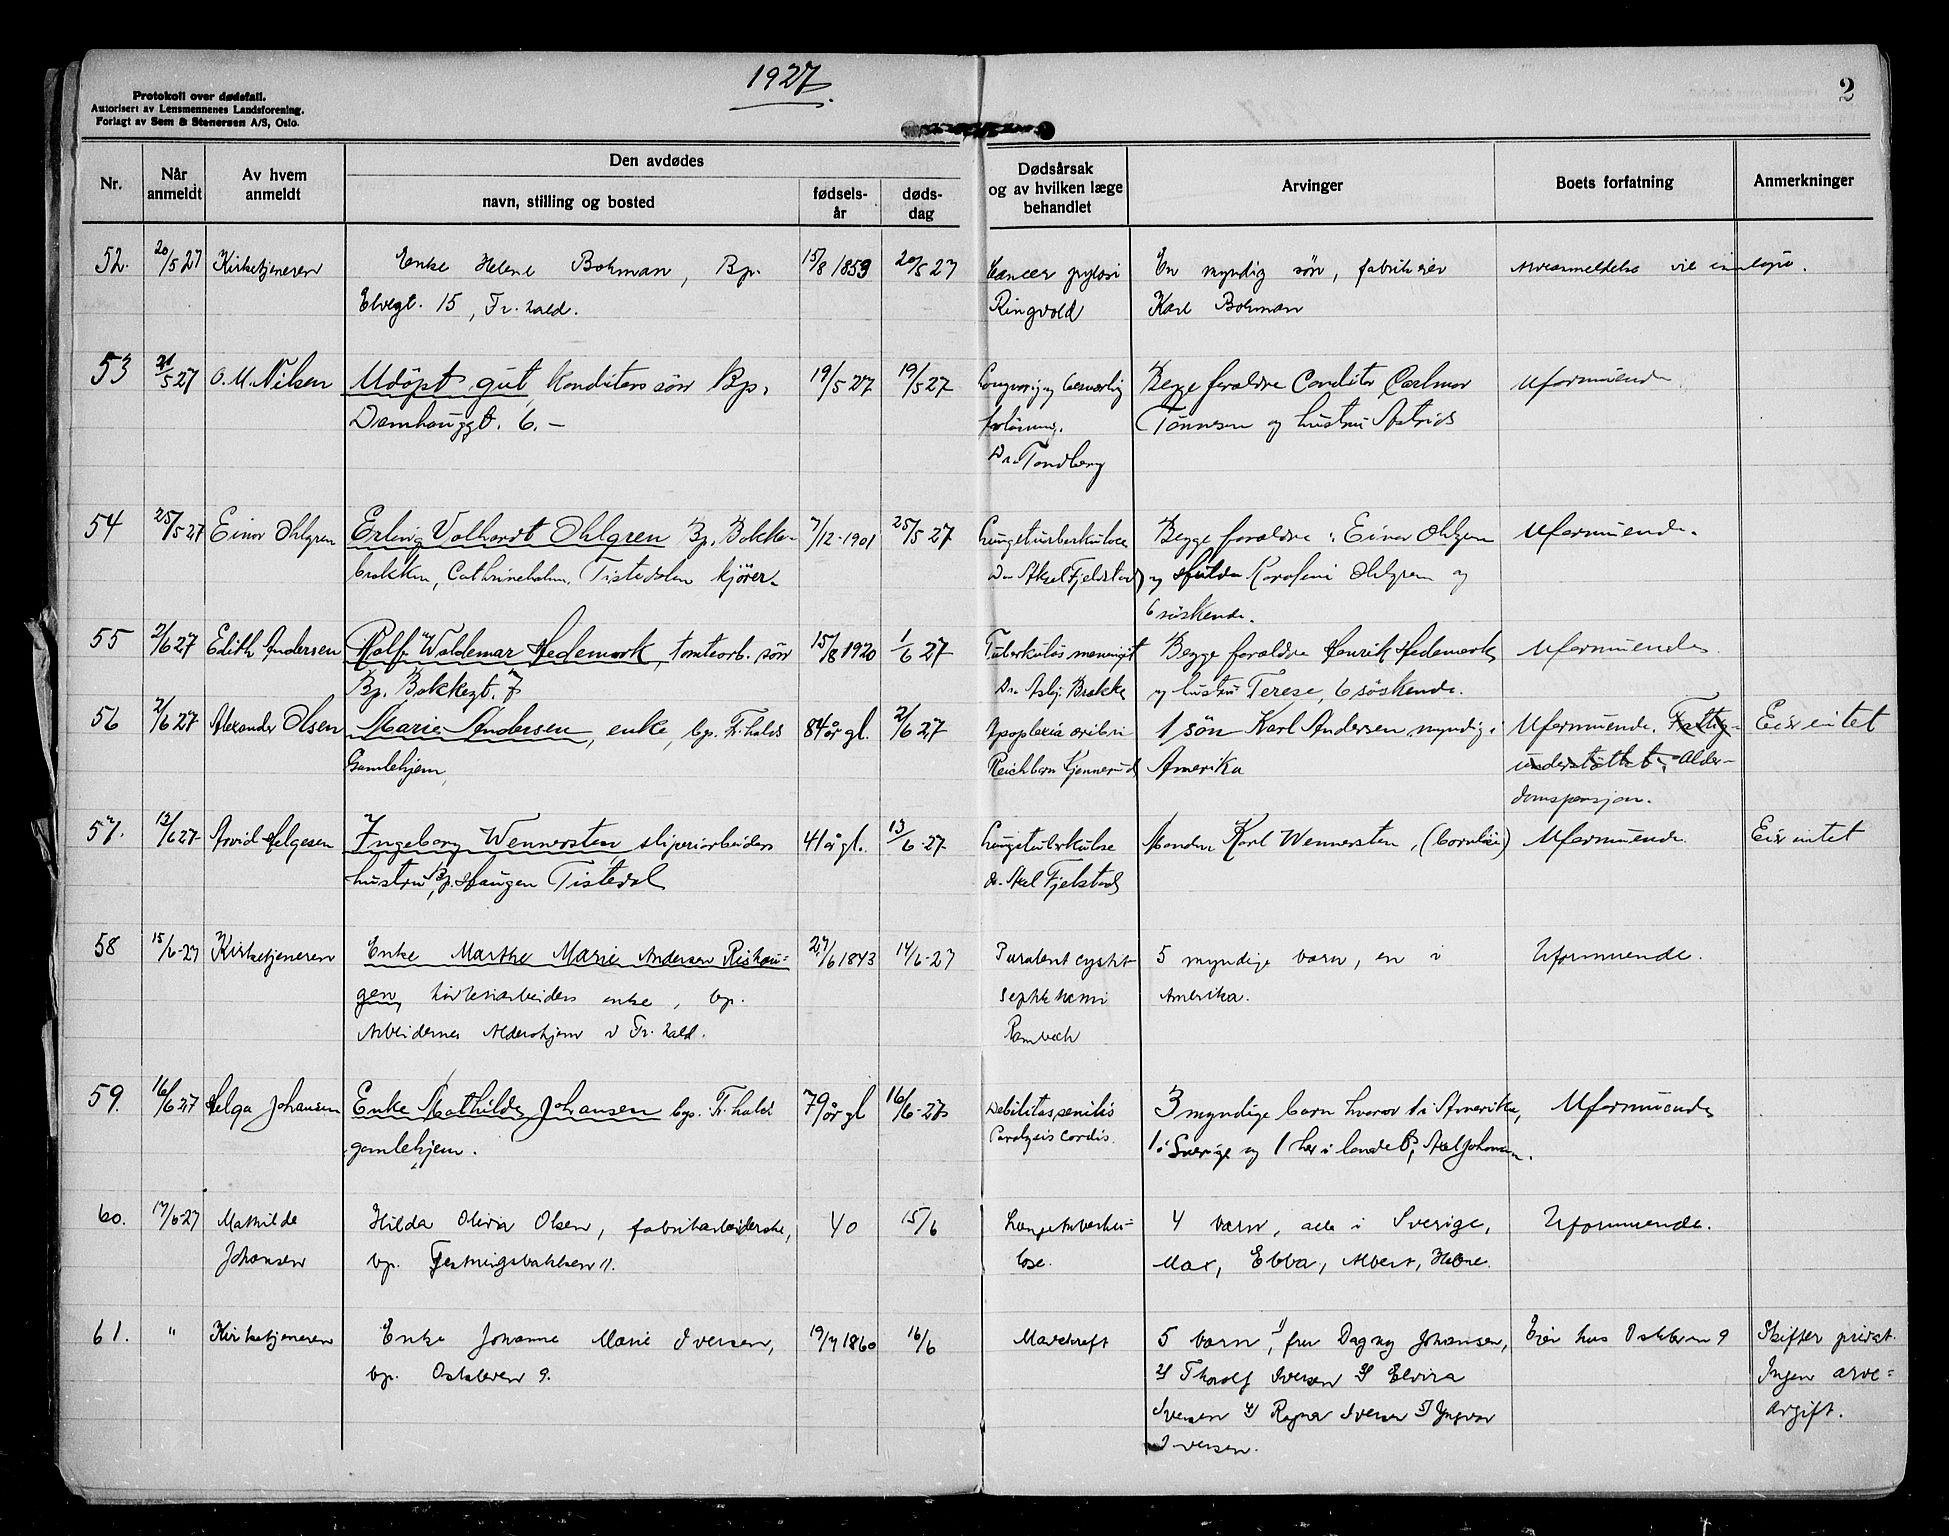 1927.
2
Protokoll over dødsfall.
Autorisert av Lensmennenes Landsforening.
Forlagt av Sem & Stenersen A/S, Oslo.
Nr. Når anmeldt Av hvem anmeldt Den avdødes navn, stilling og bosted fødselsår dødsdag Dødsårsak og av hvilken læge behandlet Arvinger Boets forfatning Anmerkninger
52. 20/5 27 Kirketjeneren Enke Helene Bohman, Bp. 15/8 1859 20/5 27 Cancer pylori En myndig sön, fabrikeier
Elvegt. 15, Fr.hald. Ringvold Karl Bohman
53 21/5 27 O. M. Nilsen Udöpt gut, Konditors sön Bp. 19/5 27 19/5 27 Langvarig og besværlig Begge foraldre Conditor Carlmar Uformuende
Damhauggt. 6. – forlösning. Tönnesen og hustru Astrid
Dr. Tandberg
54 25/5 27 Einar Ohlgren Erling Volhardt Ohlgren Bp. Bakke- 7/12-1901 25/5 27 Lungetuberkulose Begge foraldre: Einar Ohlgren Uformuende.
brakken, Cathrineholm, Tistedalen kjörer. Dr. Aksel Fjeldstad og Hulda Karoline Ohlgren og
6 söskende.
55 2/6 27 Edith Andersen Rolf Waldemar Hedemark, tomteorb. sön 15/8 1920 1/6 27 Tuberkulös meningit Begge foraldre Henrik Hedemark Uformuende
Bp. Bakkegt. 7 Dr. Asbj. Brække og hustru Terese, 6 söskende.
56 2/6 27 Alexander Olsen Marie Andersen, enke, bp. Fr.halds 84 år gl. 2/6 27 Apoplexia 1 sön Karl Andersen, myndig i Uformuende. Fattig- Eier intet
Gamlehjem, Kjennerud Amerika understöttet, Alder-
domspensjon.
57. 13/6 27 Arvid Helgesen Ingeborg Wennersten sliperiarbeiders 41 år gl. 13/6-27 Lungetuberkulose Manden Karl Wennersten, (barnlös) Uformuende. Eier intet
hustru, Bp. Haugen Tistedal dr. Axel Fjelstad
58 15/6-27 Kirketjeneren Enke Marthe Marie Andersen Rishau- 27/6 1843 14/6-27 Purulent cystit 5 myndige barn, en i Uformuende.
gen, enke, bp. Amerika.
Arbeidernes Aldershjem v Fr.hald. Rambech
59. 16/6 27 Helga Johansen Enke Mathilde Johansen bp. Fr.hald 79 år gl 16/6-27 Debilitas senilis 3 myndige barn hvorav 1 i Amerika, Uformuende
gamlehjem. Paralysis cordis. 1 i Sverige og 1 her i landet, Axel Johansen.
60. 17/6-27 Mathilde Hilda Olivia Olsen, fabrikarbeiderske, 40 15/6 Lungetuberku- 4 barn, alle i Sverige, Uformuende.
Johansen bp. Festningsbakken 11. lose. Max, Ebba, Albert, Helene.
61. " Kirketjeneren Enke Johanne Marie Iversen, 19/7 1860 16/6 Mavekreft 5 barn, 1) fru Dagny Johansen, Eier hus Oskleven 9 Skifter privat.
bp. Oskleven 9. 2) Thorolf Iversen 3) Elvira Ingen arve-
Iversen 4) Ragnar Iversen 5) Yngvar avgift.
Iversen.